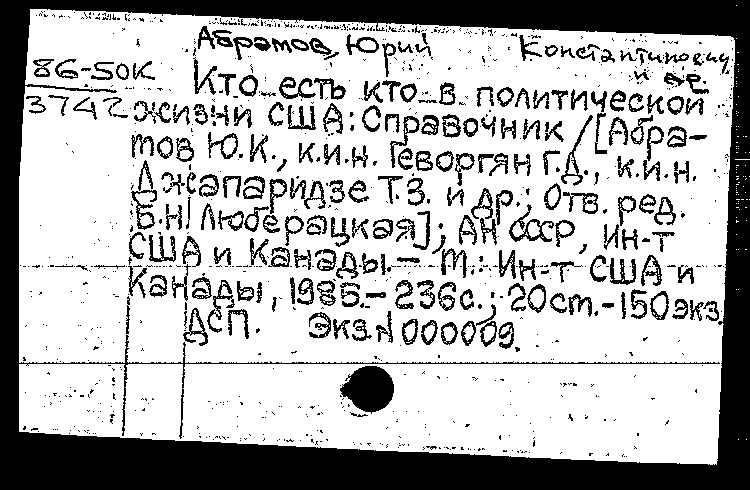 Абрамов, Юрий Константинович
и др.
86-50К
3742
Кто есть кто в политической
жизни США: Справочник / [Абра-
мов Ю.К., к.и.н. Геворгян Г.Д., к.и.н.
Джапаридзе Т.З. и др.; Отв. ред.
Б.Н. Люберацкая]; АН СССР, Ин-т
США и Канады. — М.: Ин-т США и
Канады, 1985. - 236с.; 20см. - 150экз.
ДСП. Экз.N000009.